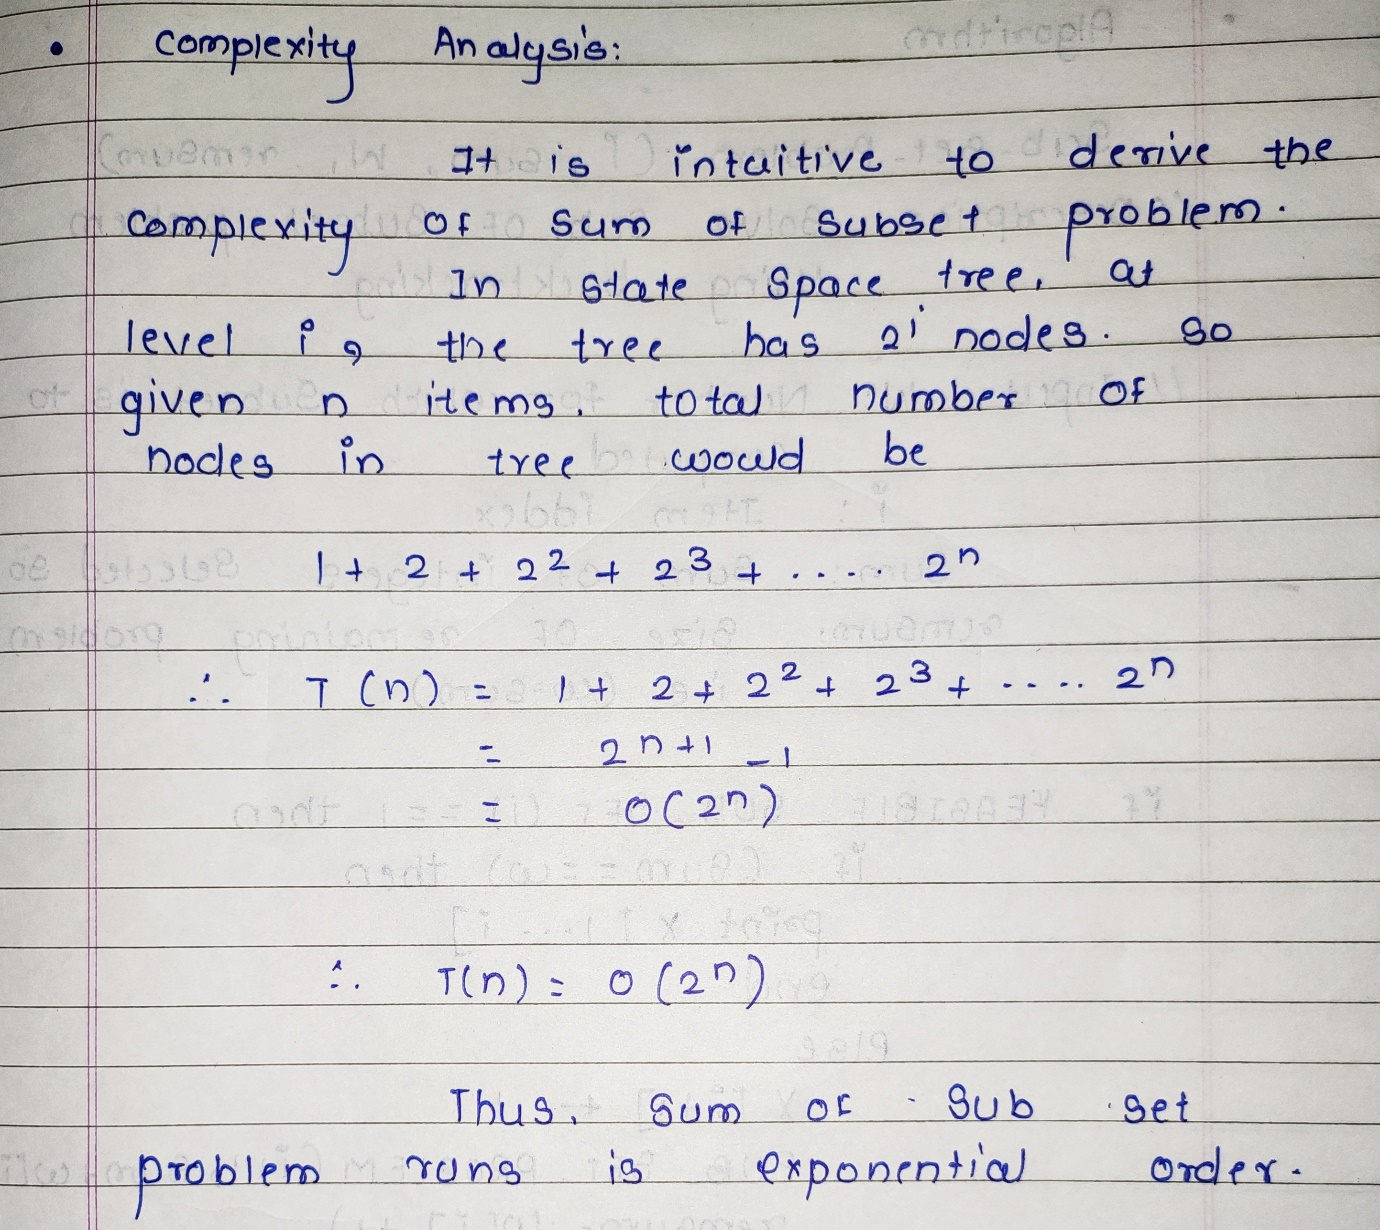 • Complexity Analysis:
It is intuitive to derive the
complexity of sum of subset problem.
In state space tree, at
level i, the tree has 2^i nodes. So
given n items, total number of
nodes in tree would be
1 + 2 + 2^2 + 2^3 + ..... 2^n
∴ T(n) = 1 + 2 + 2^2 + 2^3 + ..... 2^n
= 2^n+1 - 1
= O(2^n)
∴ T(n) = O(2^n)
Thus, sum of sub set
problem runs is exponential order.